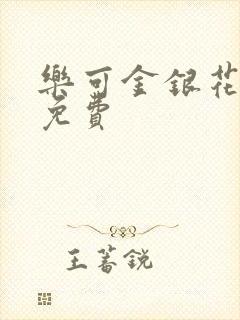 樂可金銀花
免費
王蕃銳